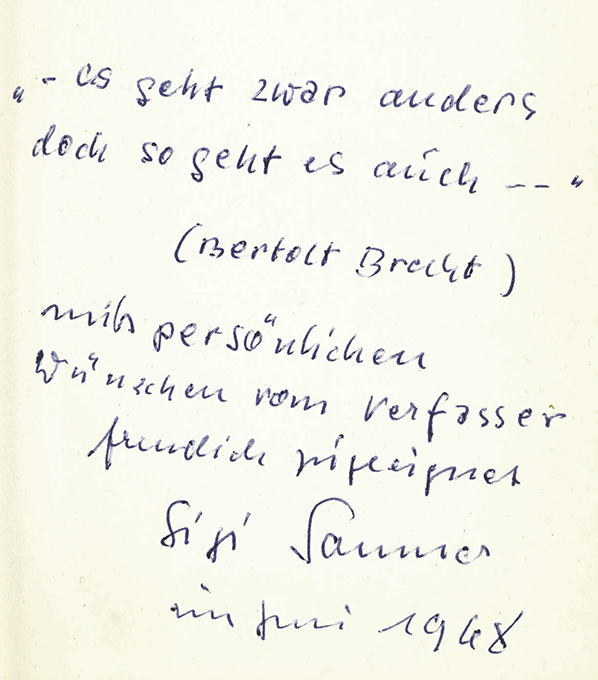 „- es geht zwar anders
doch so geht es auch -- "
(Bertolt Brecht)
mit persönlichen
Wünschen vom Verfasser
freundlich zugeeignet
Sigi Sommer
im Juni 1968